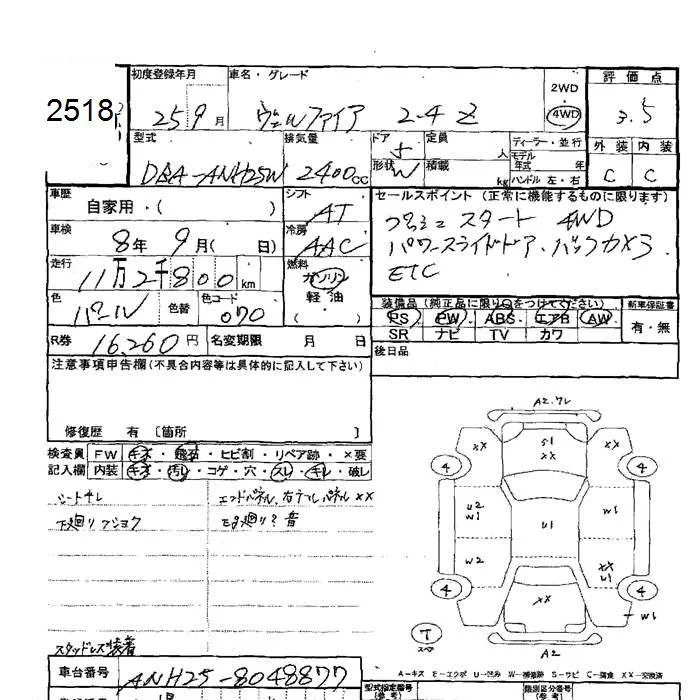 2518
初度登録年月 車名・グレード 2WD・4WD 評価点
25 9月 ヴェルファイア 2.4 Z 3.5
型式 排気量 ドア 形状 定員 人 積載 kg
DBA-ANH25W 2400cc 5 W
ディーラー・並行
モデル年式 年
ハンドル 左・右
外装 内装
C C
車歴 自家用・( )
シフト AT
車検 8年 9月( 日)
冷房 AAC
走行 11万2千800km
燃料 ガソリン 軽油
色 パール 色替 色コード 070
セールスポイント(正常に機能するものに限ります)
プッシュスタート 4WD
パワースライドドア・バックカメラ
ETC
装備品(純正品に限り○をつけてください) 新車保証書
PS PW ABS エアB AW 有・無
SR ナビ TV カワ
R券 16,260円 名変期限 月 日
後日品
注意事項申告欄(不具合内容等は具体的に記入して下さい)
修復歴 有 〔箇所
検査員記入欄
FW キズ・飛石・ヒビ割・リペア跡・×要
内装 キズ・汚レ・コゲ・穴・スレ・キレ・破レ
シートキレ エンドパネル、右テールパネル XX
下廻りフショク
スタッドレス装着
車台番号 ANH25-8048877
A2.ワレ
XX S1 XX XX
4 4
U2 W1 U1 W1
W2 XX U1
4 4
XX W1
T
スペア
A2
A-キズ E-エクボ U-凹み W-補修跡 S-サビ C-腐食 XX-交換済
型式指定番号(参考) 類別区分番号(参考)